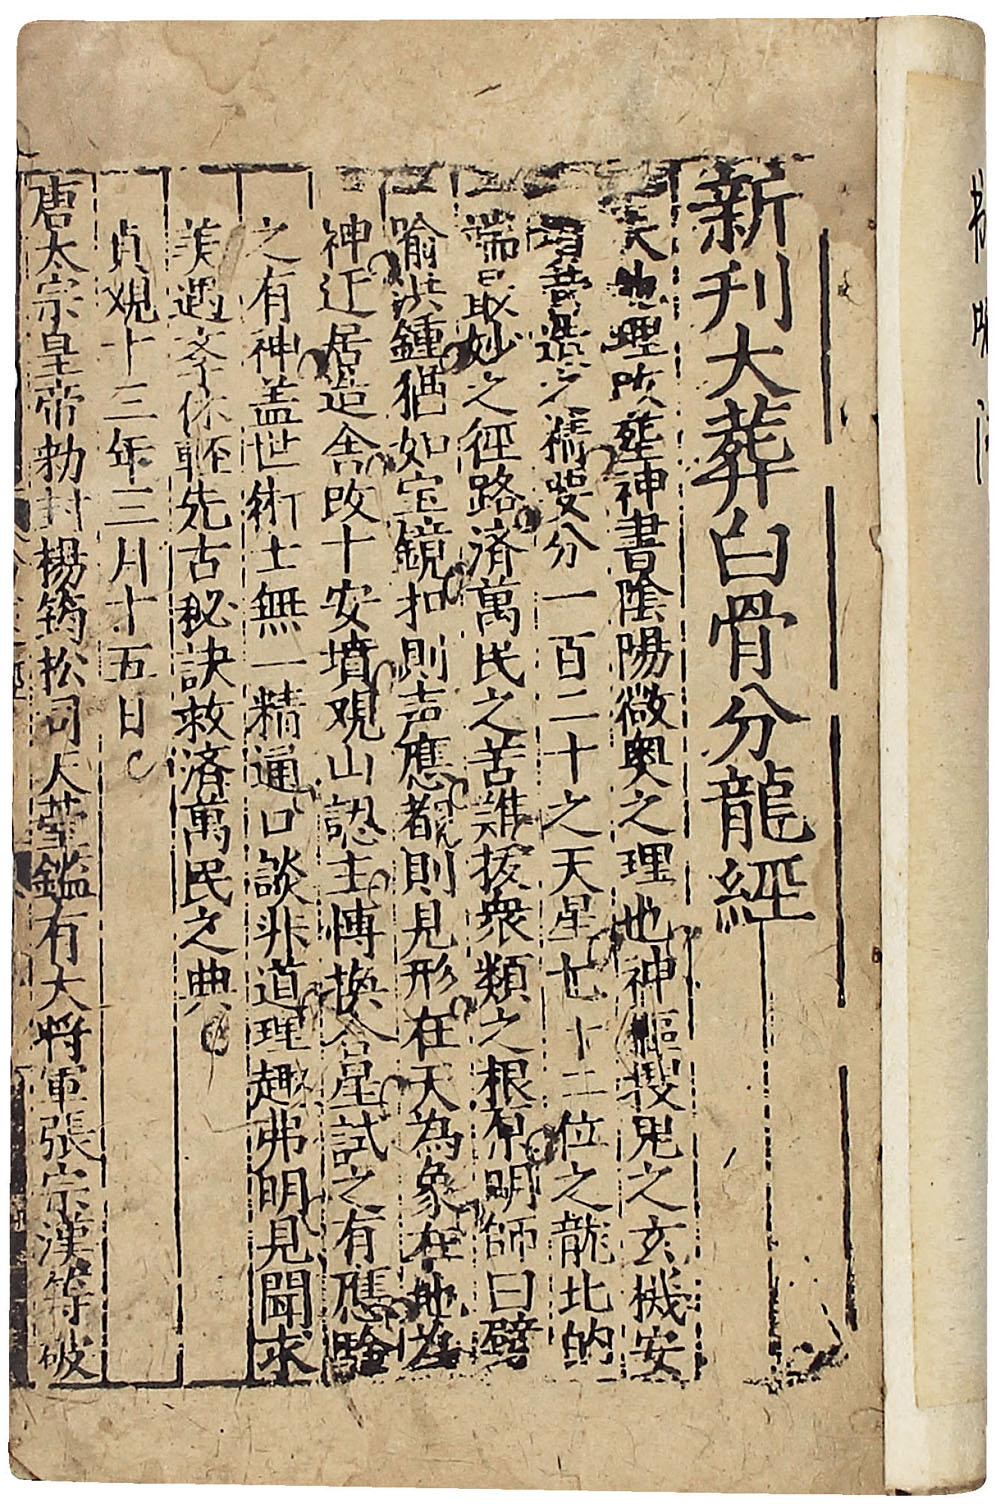 新刋大葬白骨分龍經
夫地理改葬神書陰陽微奥之理也神樞授鬼之玄機安
之舊要分一百二十之天星七十二位之龍此的
端最妙之徑路済萬民之苦難拔衆類之根原明師曰譬
喻洪鍾猶如宝鏡扣則声應都則見形在天為象在地為
神迁居造舍改十安墳观山認主博換合星試之有應驗
之有神盖世術士無一精通口談非道理趣弗明見聞求
美遇李休輕先古秘訣救済萬民之典
貞观十三年三月十五日
唐太宗皇帝勅封楊筠松司天臺鑑有大将軍張宗漢等破